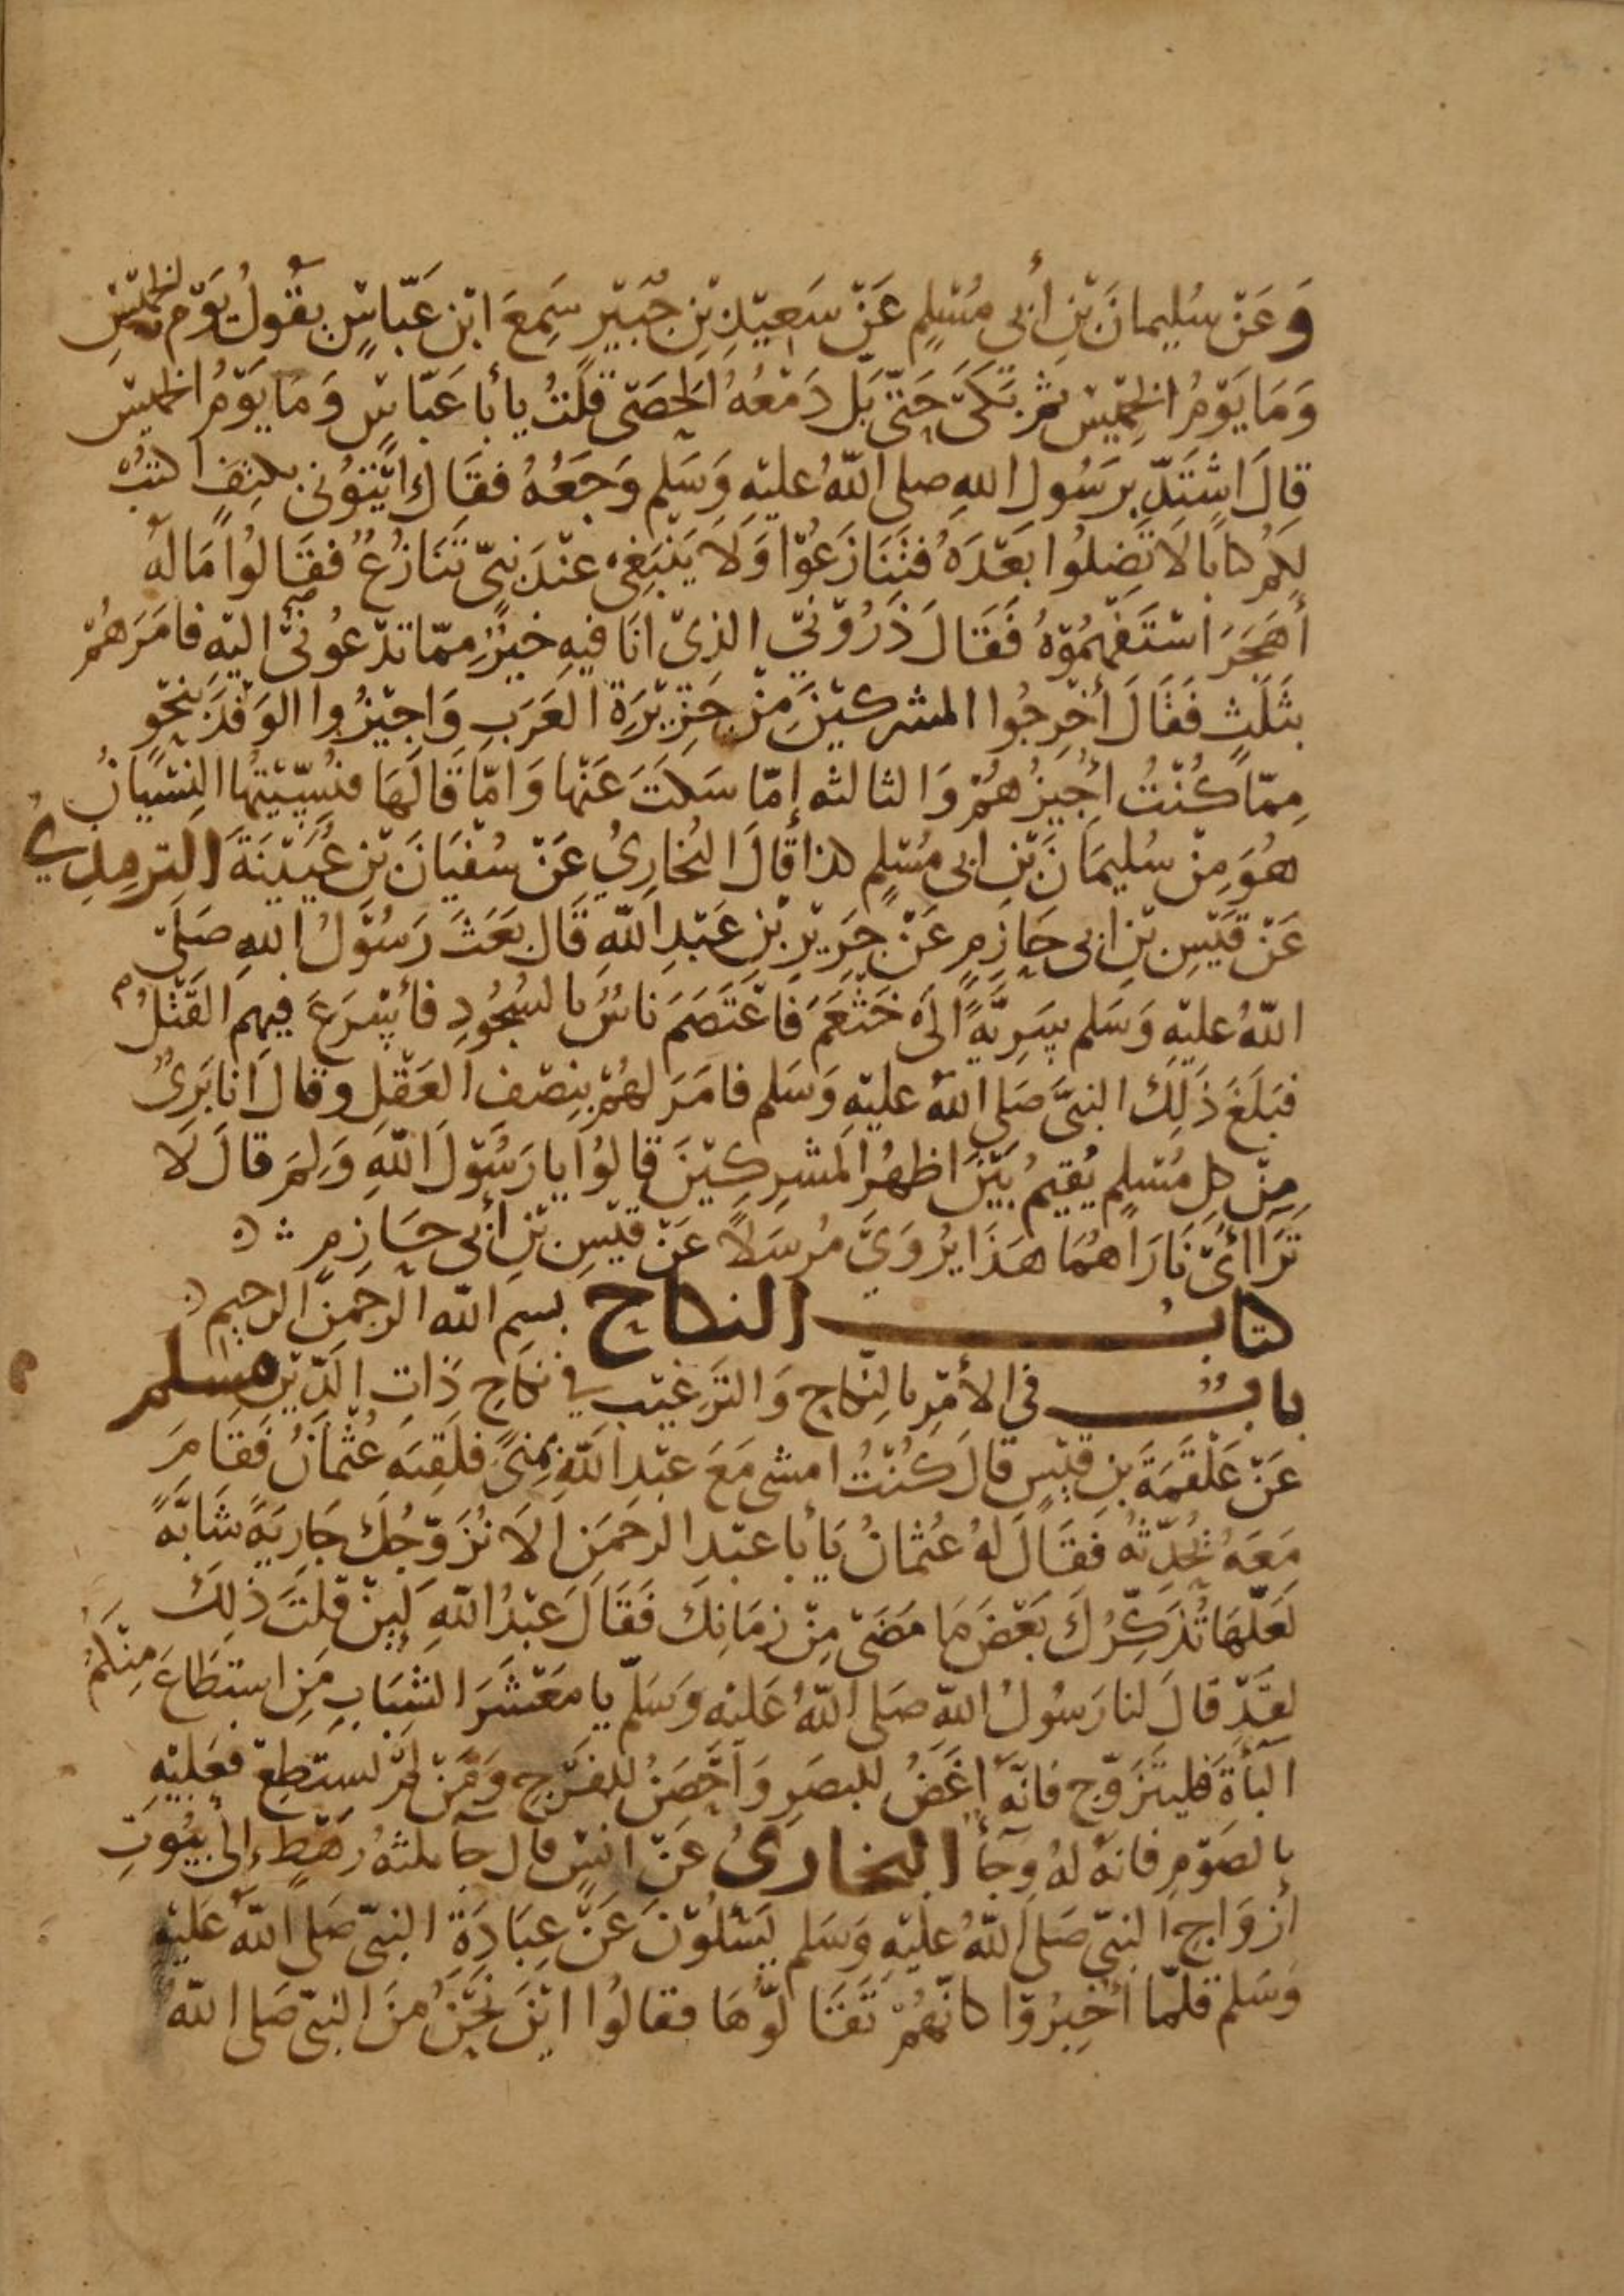 وَعَنْ سُليمانَ بْنِ أَبي مُسْلِمٍ عَنْ سَعِيْدِ بْنِ جُبَيْرٍ سَمِعَ ابْنَ عَبّاسٍ يَقُولُ يَوْمُ الخَمِيْسِ
وَمَا يَوْمُ الخَمِيْسِ ثم بَكَىٰ حَتّىٰ بَلَّ دَمْعُهُ الحَصَى قلْتُ يا أبا عَبّاسٍ وَمَا يَوْمُ الخميْس
قالَ اشْتَدَّ برَسُول الله صلى اللهُ عليْهِ وَسَلم وَجَعُهُ فقَالَ ائْتُوْني بكتِفٍ اكتبْ
لكم كتابًا لاَ تَضِلُوا بَعْدَهُ فتَنَازَعُوْا وَلاَ يَنْبَغِيْ عنْدَ نبيّ تَنَازُعٌ فقَالوُا مَا لهُ
أَهَجَرَ اسْتَفْهِمُوْهُ فَقَالَ ذَرُوْنيْ الذِيْ انَا فيهِ خيْرٌ ممّا تَدْعُونيْ اليْهِ فامَرَهُمْ
بثَلَثٍ فَقَالَ أَخْرِجُوا المشركيْنَ مِنْ جَزِيْرَةِ العَرَبِ وَاجِيْزُوا الوَفْدَ بنَحْوِ
مِمّا كُنْتُ أُجِيْزُهُمْ وَالثالثه إِمّا سَكتَ عَنْها وَامّا قَالَهَا فنُسِّيْتُهَا النسْيَانُ
هُوَ مِنْ سُليمَانَ بْنِ ابي مُسْلِمٍ كذا قالَ البُخارِيُ عَنْ سُفْيَانَ بْنِ عُيَيْنَةَ الترمِذِيُ
عَنْ قَيْسِ بْنِ ابي حَازِمٍ عَنْ جَرِيْرِ بْنِ عَبْدِ اللهِ قَالَ بَعَثَ رَسُوْلُ اللهِ صَلىّ
اللهُ عليْهِ وَسَلم سَرِيَّةً الىٰ خَثْعَمَ فَاعْتَصَمَ ناسٌ بالسُجُودِ فأسْرَعَ فيهِم القَتْلُ
فبَلَغَ ذَلِكَ النبيَّ صَلى اللهُ عليْهِ وَسَلم فامَرَ لهُمْ بِنِصْفِ العَقْلِ وقالَ انا بَرِىٌ
مِنْ كلِ مُسْلِمٍ يُقيمُ بَيْنَ اظهُرِ المشرِكِيْنَ قالوُا يا رَسُوْلَ اللهِ وَلِمَ قالَ لَا
تَرَاأىْ نَارَاهُمَا هَذَا يُرْوَىَ مُرسَلاً عَنْ قيْسِ بْنِ أَبي حَازِمٍ
كتاب النكاح بسم الله الرحمن الرحيم
باب في الأمْرِ بالنِكاحِ وَالتَرغِيْب في نكاحِ ذَاتِ الدِّيْنِ مسلم
عَنْ عَلْقَمَةَ بنِ قيْسٍ قالَ كُنْتُ امشي مَعَ عبْدِ اللهِ بمِنىً فلَقِيَه عُثْمَانُ فَقَامَ
مَعَهُ يُحَدِّثهُ فَقَالَ لهُ عُثْمانُ يَا أبا عبْدِ الرحمَنِ الاَ نُزَوّجُكَ جَارِيَةً شَابَّةً
لَعَلّهَا تُذَكِّرُكَ بَعْضَ مَا مَضَىْ مِنْ زمَانِكَ فَقَالَ عَبْدُ اللهِ لَئِنْ قلْتَ ذلِكَ
لقَدْ قالَ لنا رَسُولُ اللهِ صَلى اللهُ عَليْهِ وَسَلّم يا مَعْشَرَ الشبَابِ مَنِ استطَاعَ مِنْكمُ
البآءَةَ فليتَزَوّج فانّهَ اغَضُ للبصَرِ وَاَحْصَنُ للفَرْجِ وَمَنْ لَمْ يَستطِعْ فعَليْهِ
بالصَوْمِ فانهُ لهُ وِجَأ البخاري عَنْ انسٍ قال جآ ثلثهُ رَهْطٍ إِلىٰ بُيُوتِ
أزوَاجِ النبيّ صَلى اللهُ عليْهِ وَسَلم يَسْئلوْنَ عَنْ عِبَادَةِ النبيّ صَلى اللهُ عَليْهِ
وَسَلم فلمّا أُخبِرُوْا كانّهُمْ تَقَالوّهَا فقالوُا ايْنَ نَحْنُ مِنَ النبيّ صَلى اللهُ